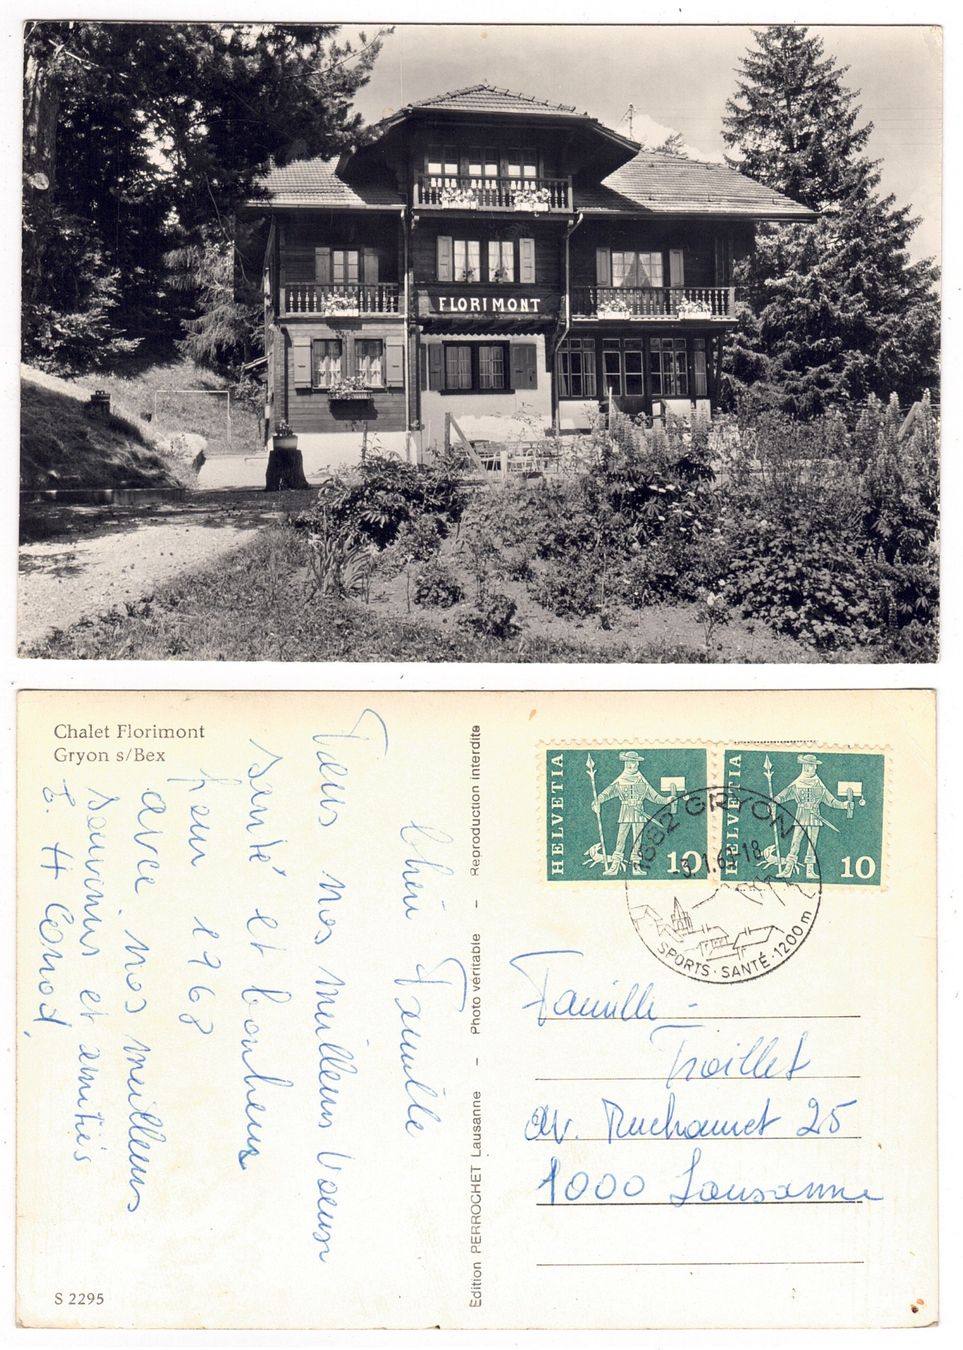 FLORIMONT
Chalet Florimont
Gryon s/Bex
Chère Famille
Tous nos meilleurs voeux
santé et bonheur
pour 1968
avec nos meilleurs
souvenirs et amitiés
S 2295
Edition PERROCHET Lausanne – Photo véritable – Reproduction interdite
HELVETIA 10
HELVETIA 10
1882 GRYON
SPORTS · SANTÉ · 1200 m
Famille -
Troillet
av. Ruchonnet 25
1000 Lausanne